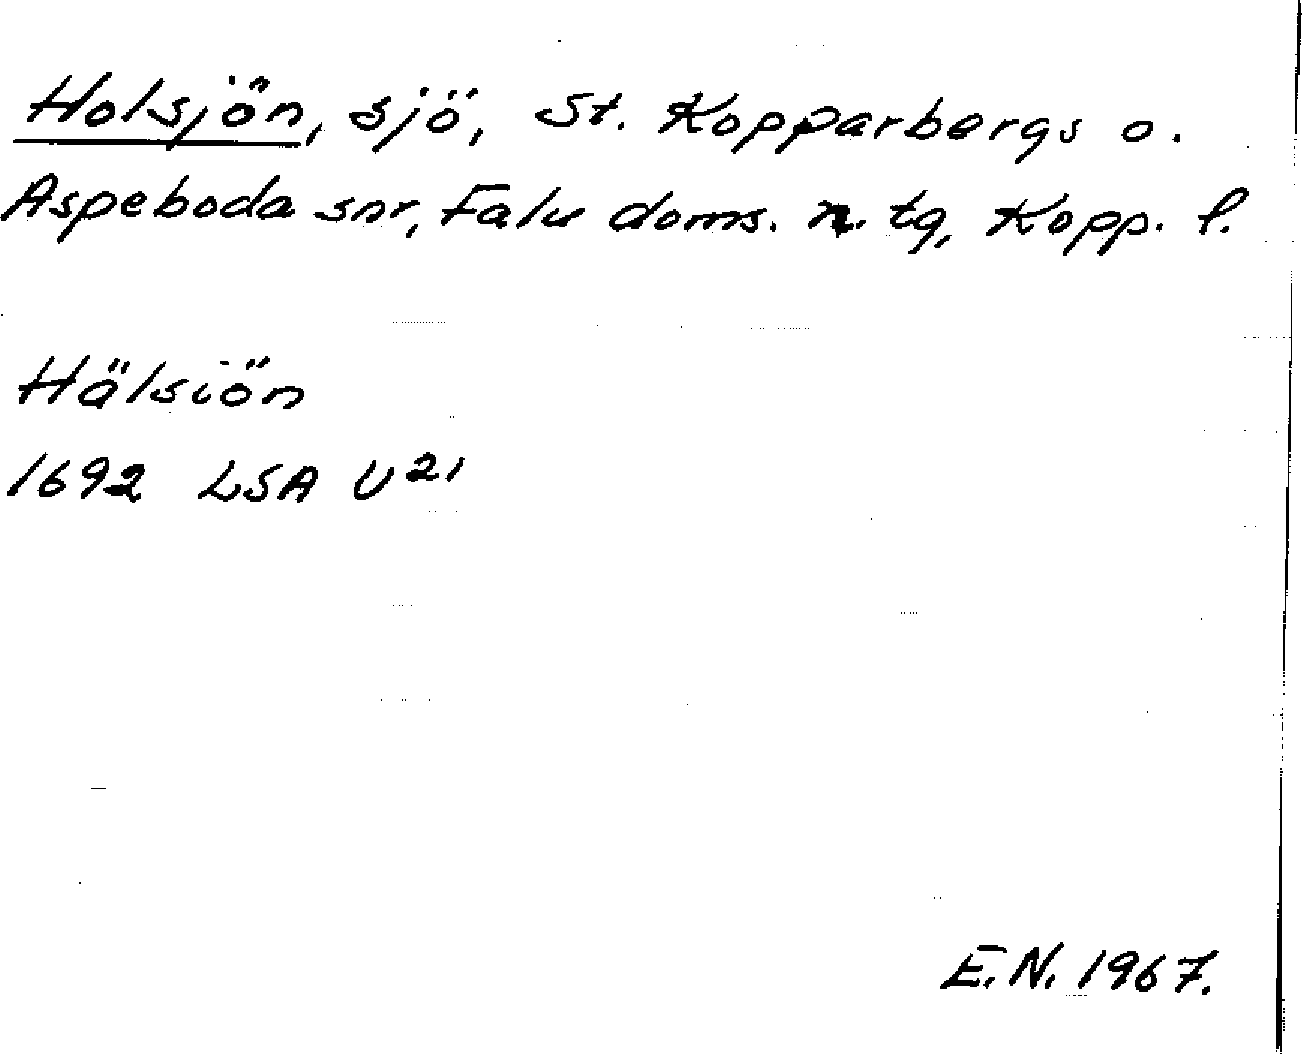 Holsjön, sjö, St. Kopparbergs o.
Aspeboda snr, Falu doms. n. tg, Kopp. l.
Hälsiön
1692 LSA U²¹
E.N. 1967.